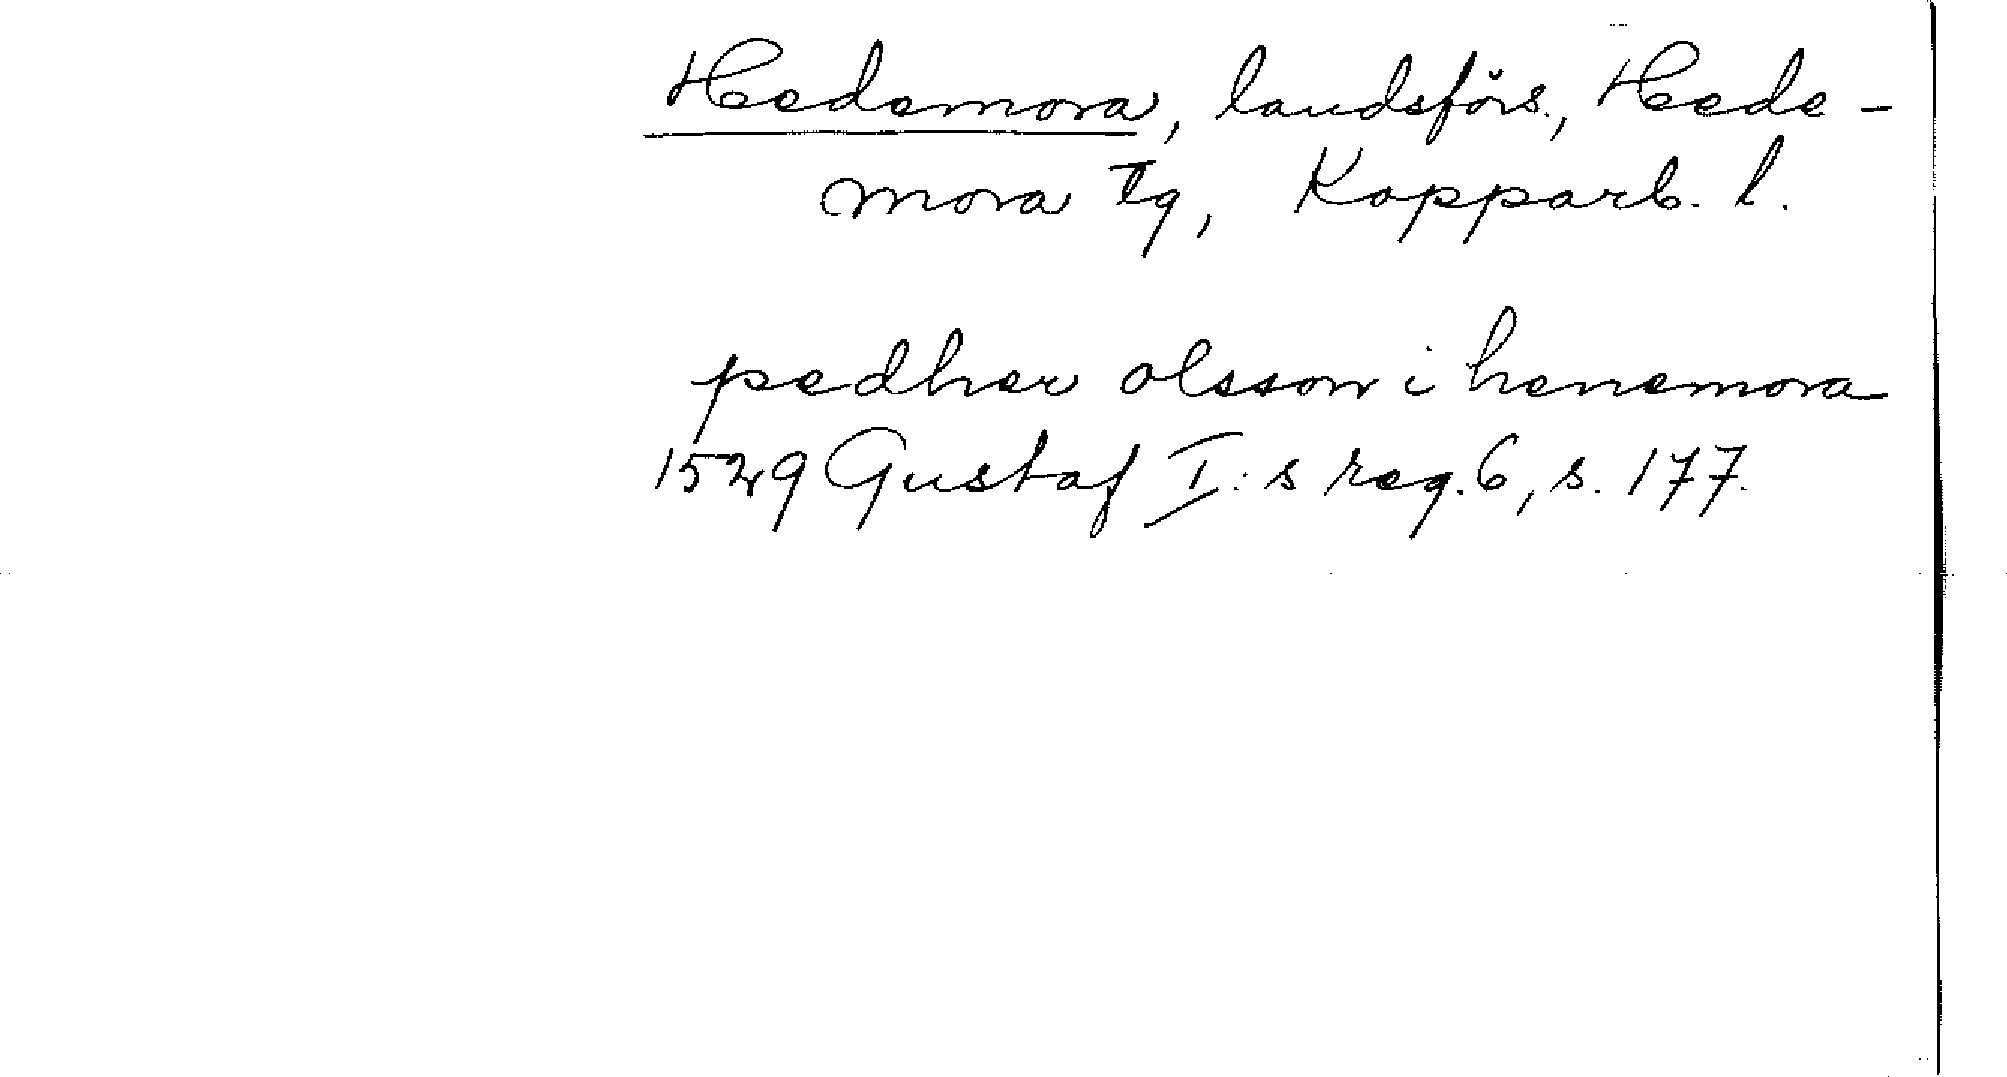 Hedemora, landsförs., Hede-
mora tg, Kopparb. l.
pedher olsson i henemora
1529 Gustaf I:s reg. 6, s. 177.